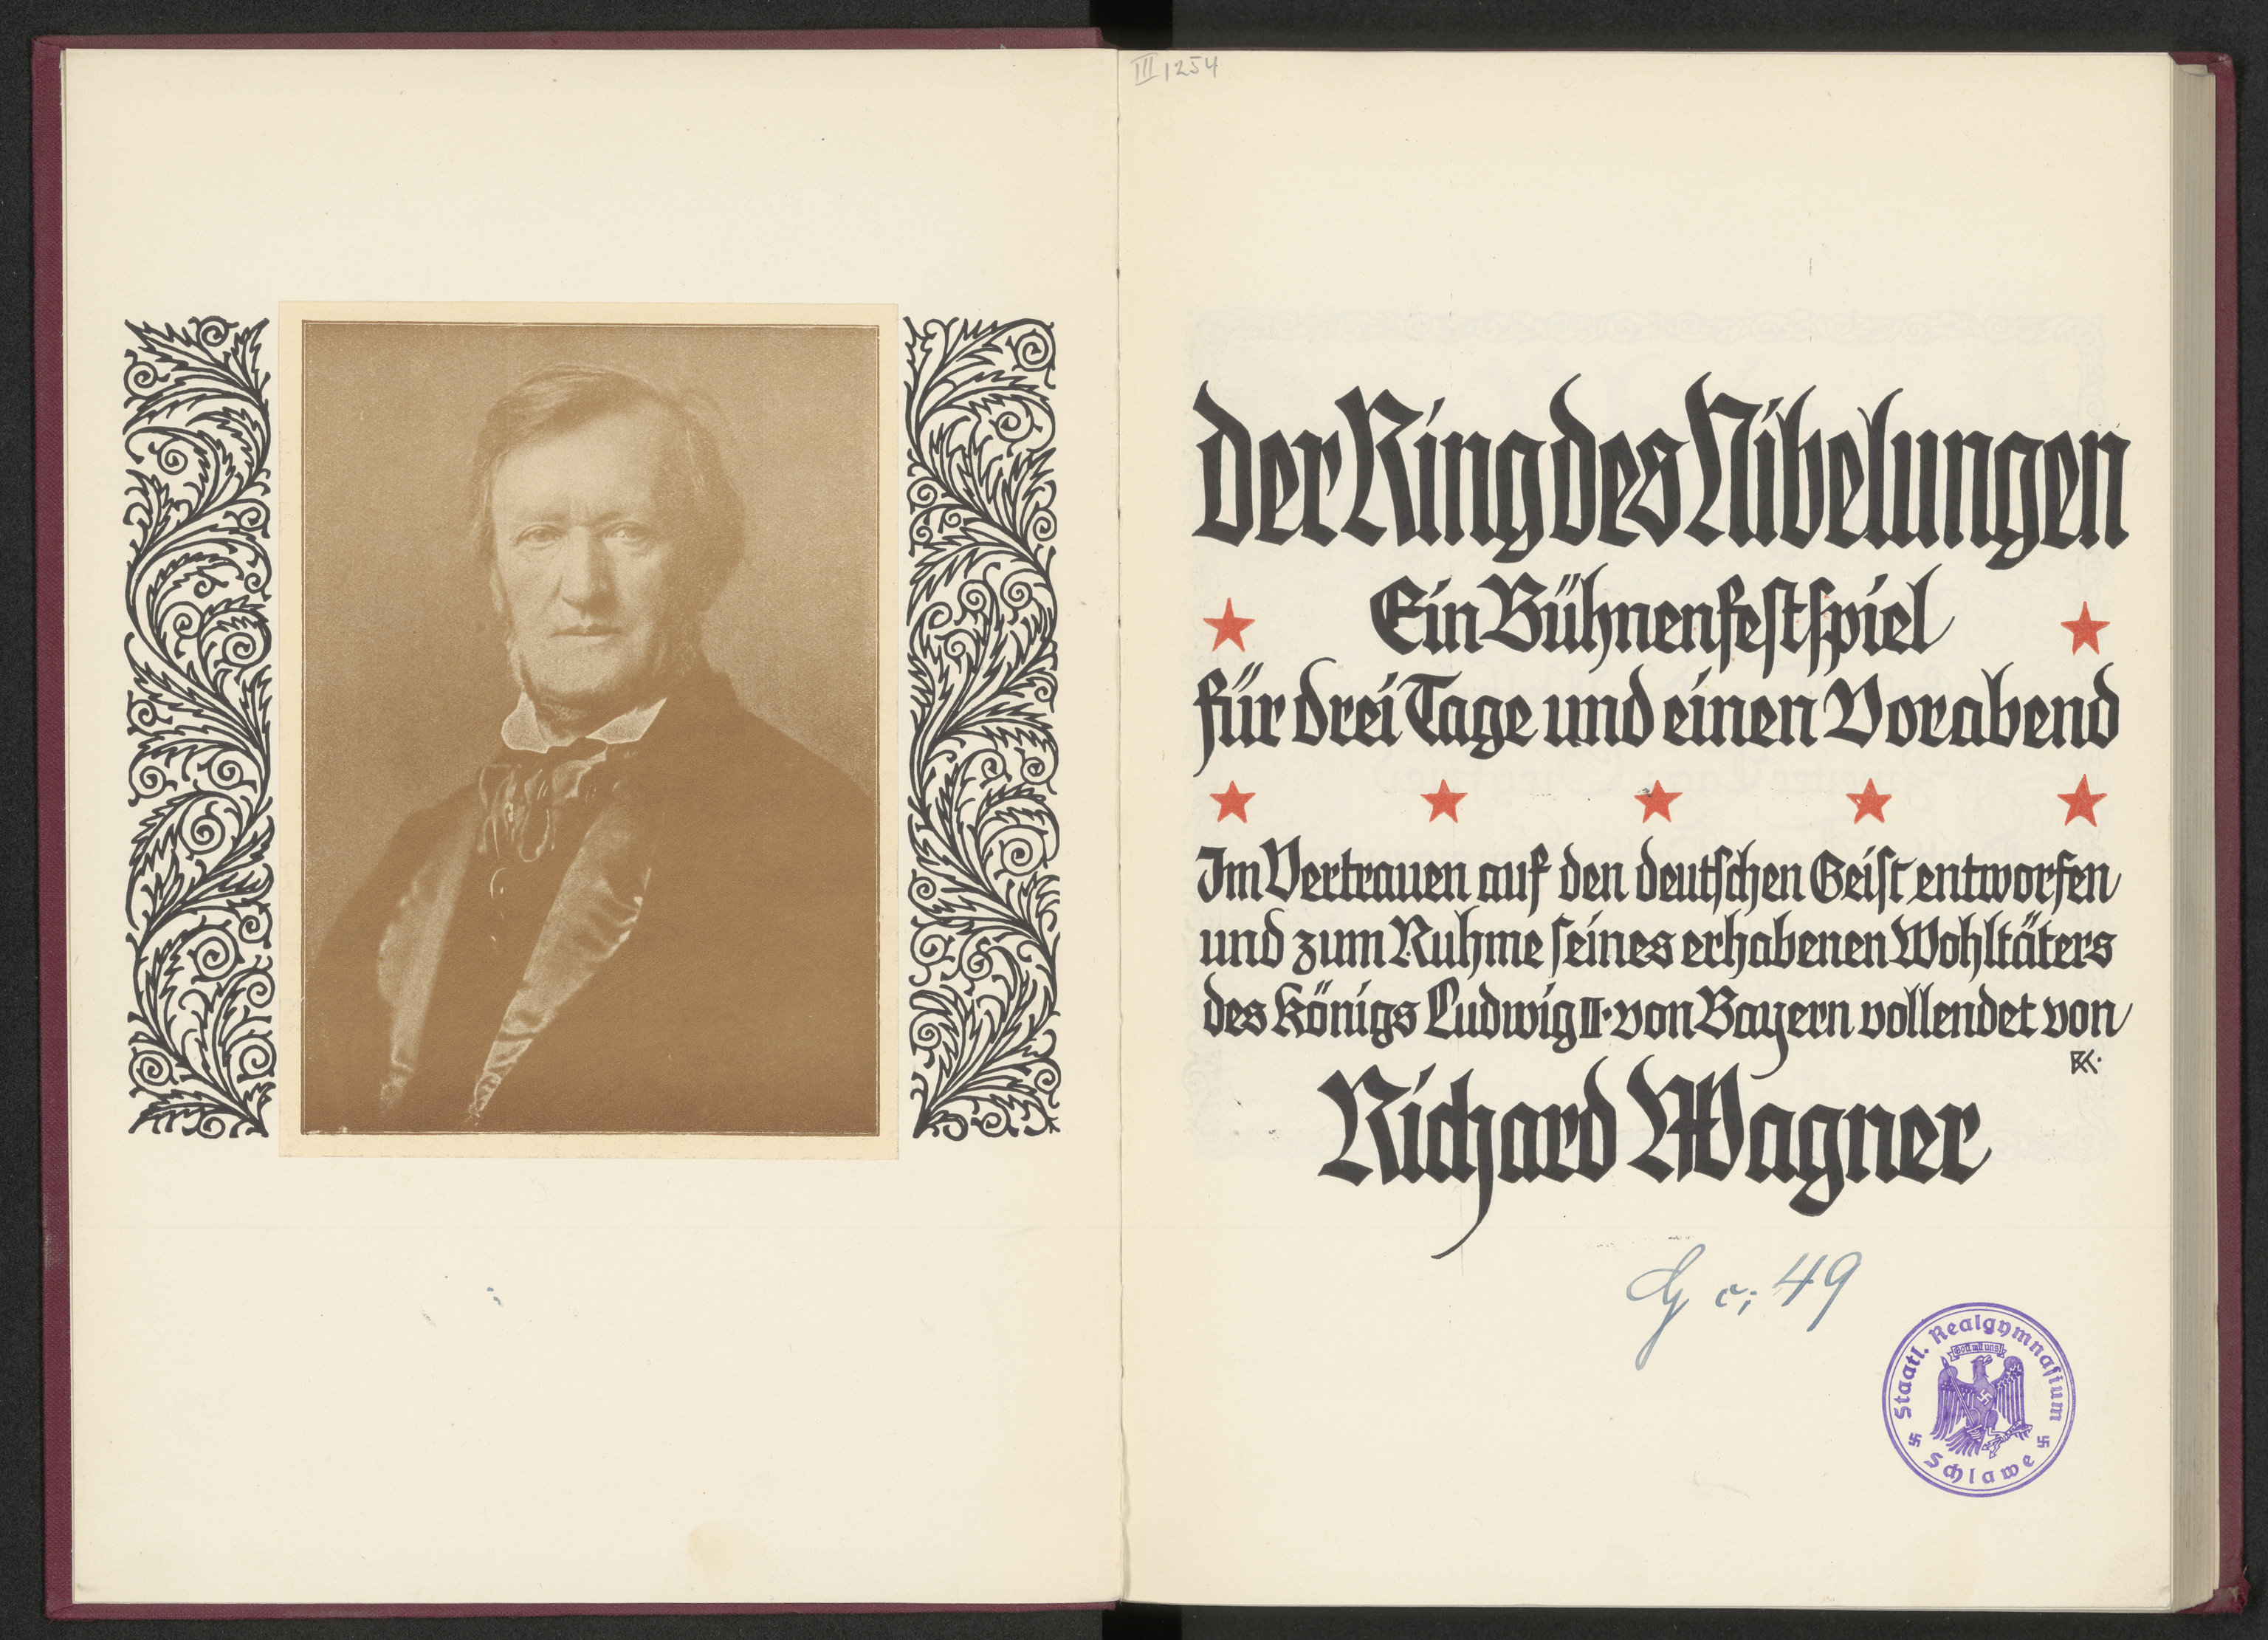 III 1254
Der Ring des Nibelungen
Ein Bühnenfestspiel
für drei Tage und einen Vorabend
Im Vertrauen auf den deutschen Geist entworfen
und zum Ruhme seines erhabenen Wohltäters
des Königs Ludwig II. von Bayern vollendet von
Richard Wagner
c; 49
Staatl. Realgymnasium
Gott mit uns
Schlawe